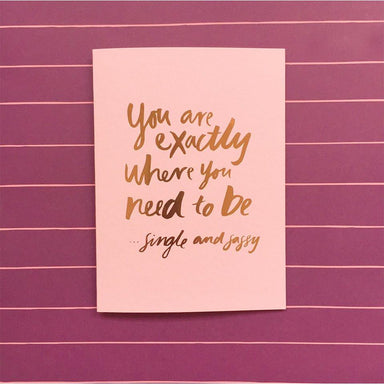 You are
exactly
where you
need to be
...single and sassy